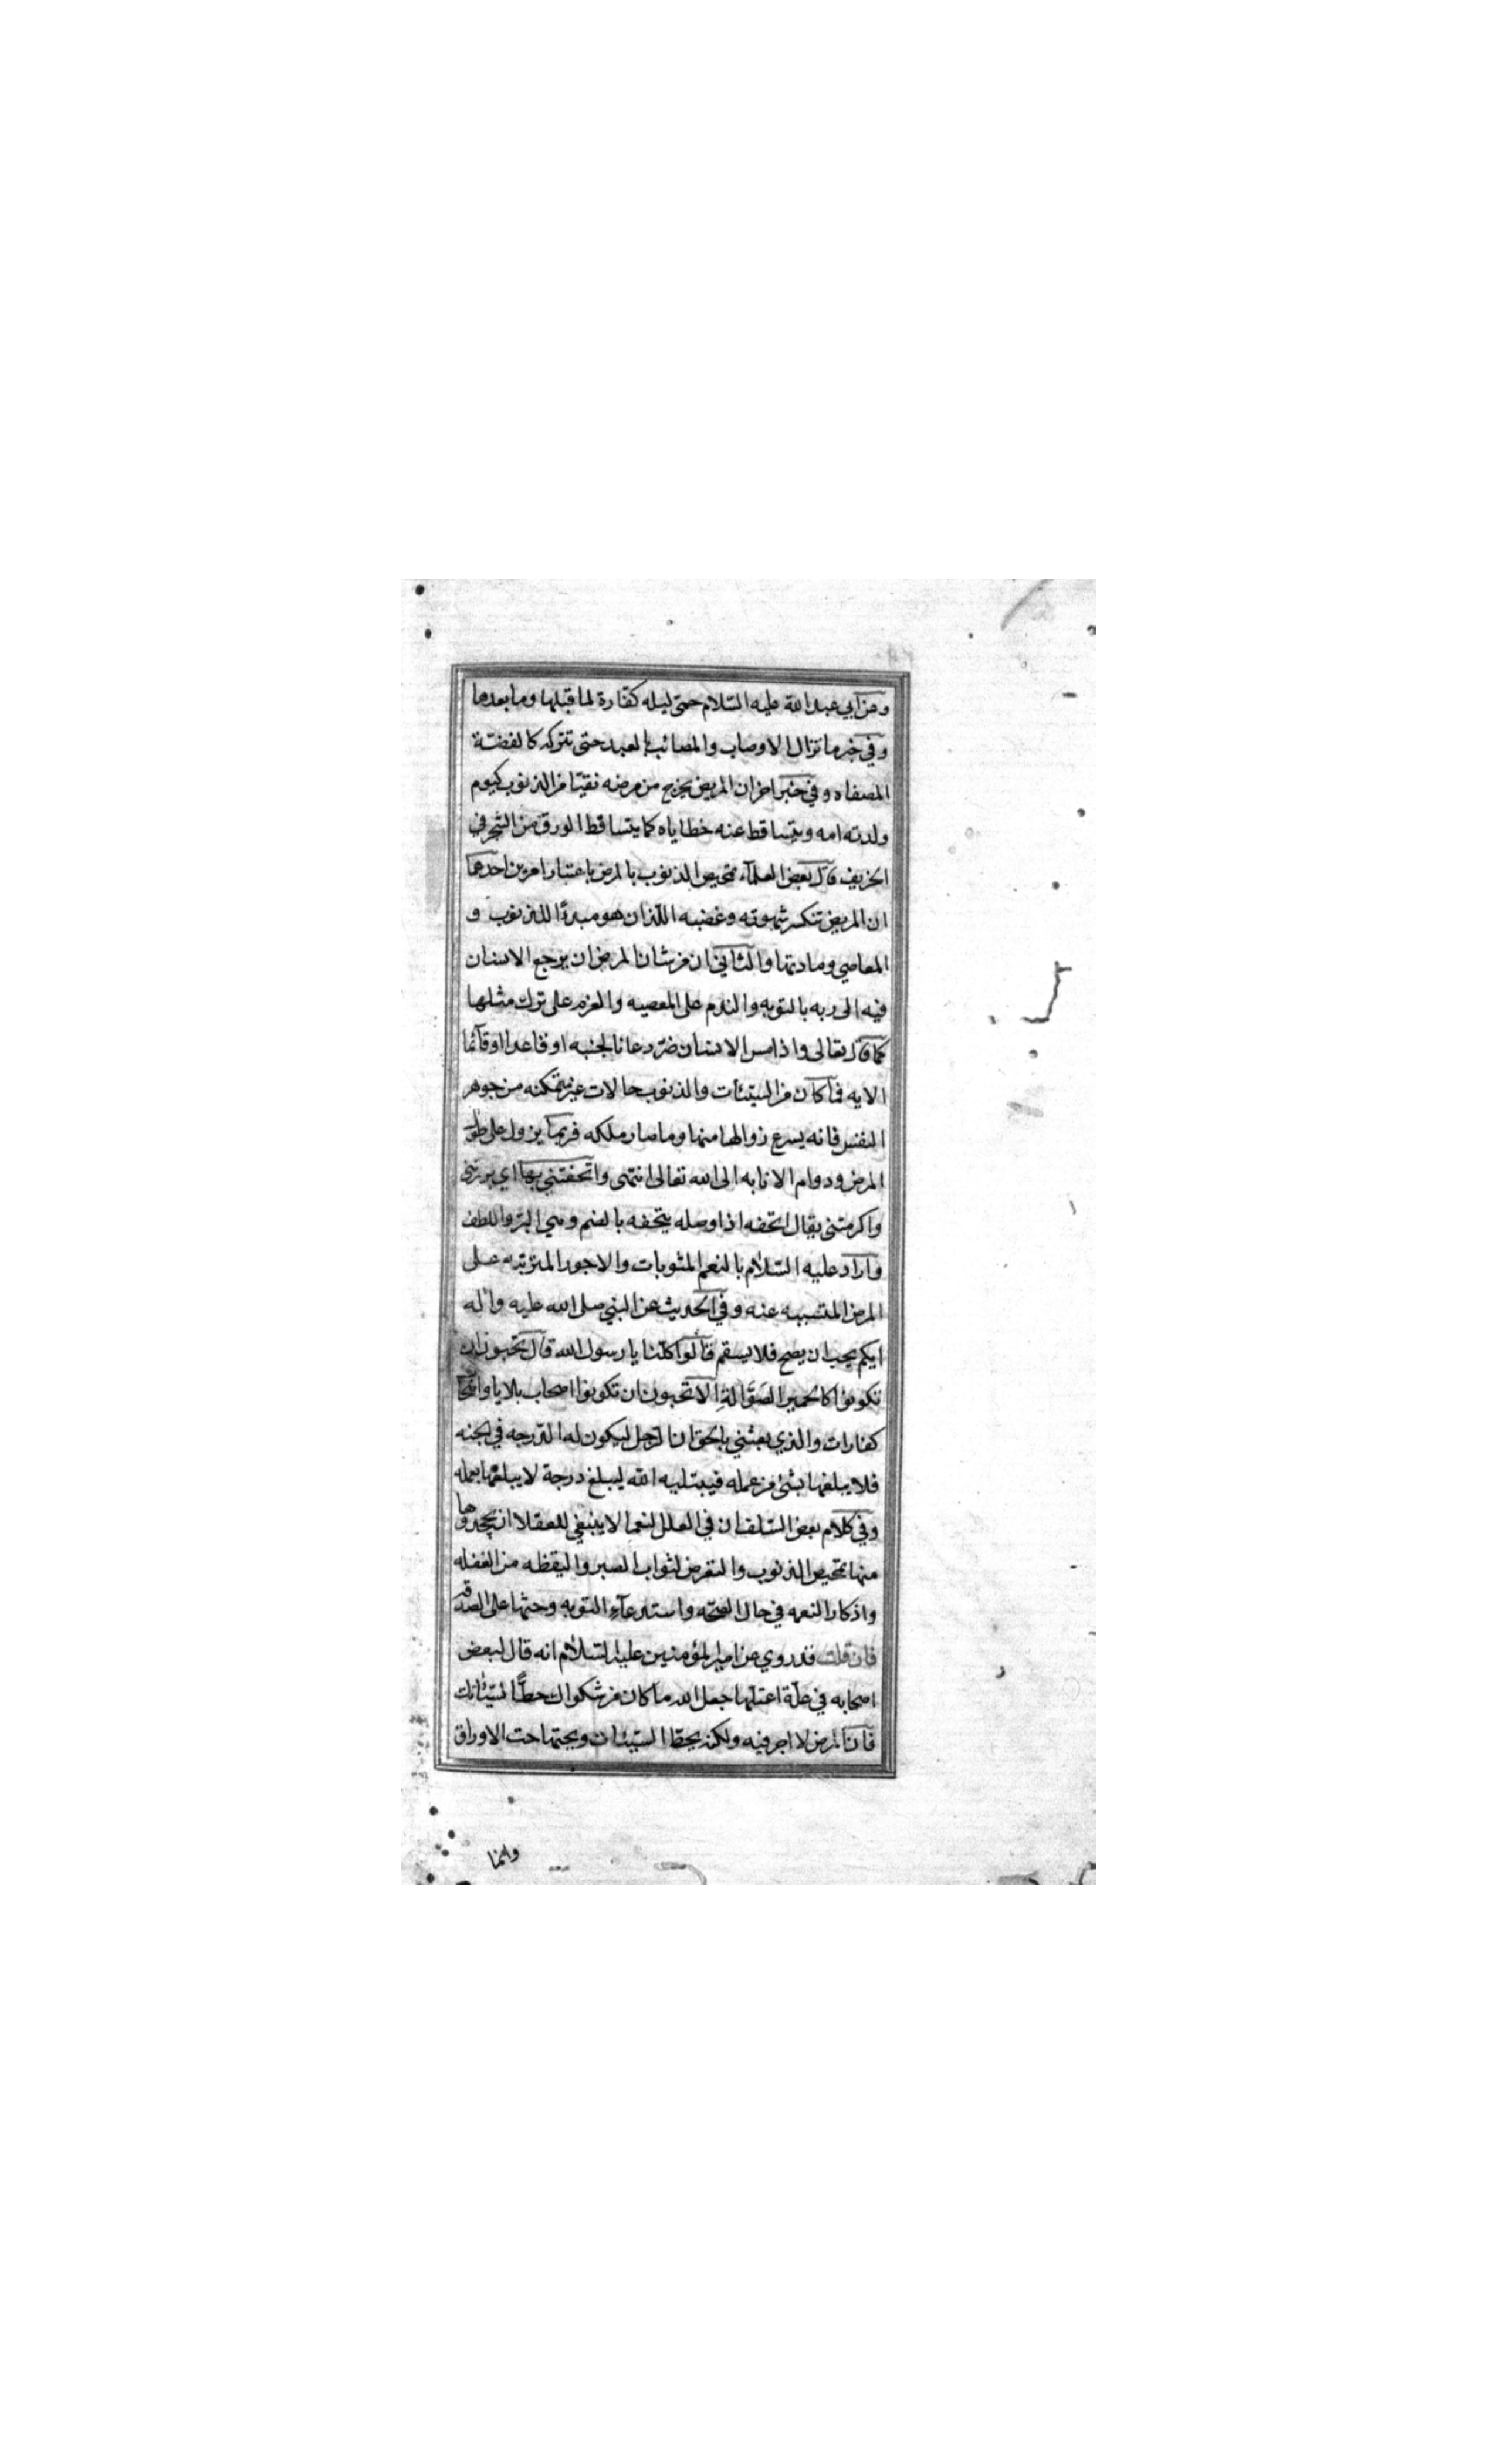 وعن ابي عبد الله عليه السّلام حمّى ليله كفّارة لما قبلها وما بعدها
وفي خبر ما تزال الاوصاب والمصائب بالعبد حتى تتركه كالفضّة
المصفاه وفي خبر اخر ان المريض يخرج من مرضه نقيّا من الذنوب كيوم
ولدته امه ويتساقط عنه خطاياه كما يتساقط الورق من الشجر في
الخريف قال بعض العلمآء تمحيص الذنوب بالمرض باعتبار امرين احدهما
ان المريض تنكسر شهوته وغضبه اللّذان هو مبدءًا للذنوب و
المعاصي ومادتها والثاني ان من شان المرض ان يرجع الانسان
فيه الى ربه بالتوبه والندم على المعصيه والعزم على ترك مثلها
كما قال تعالى واذا مس الانسان ضرّ دعانا لجنبه او قاعدا او قآئما
الايه فما كان من السيّئات والذنوب حالات غير متمكنه من جوهر
النفس فانه يسرع زوالها منها وما صار ملكه فربما يزول على طول
المرض ودوام الانابه الى الله تعالى انتهى واتحفتني بها اي بررتني
واكرمتني يقال اتحفه اذا وصله بتحفه بالضم وهي البرّ واللطف
واراد عليه السّلام بالنعم المثوبات والاجور المترتبّه على
المرض المتسببه عنه وفي الحديث عن النبي صلى الله عليه واله
ايكم يحب ان يصح فلا يسقم قالوا كلّنا يا رسول الله قال تحبون ان
تكونوا كالحمير الصَوَّالةِ الا تحبون ان تكونوا اصحاب بلايا واصحاب
كفارات والذي بعثني بالحق ان الرّجل ليكون له الدّرجه في الجنه
فلا يبلغها بشئ من عمله فيبتليه الله ليبلغ درجة لا يبلغها بعمله
وفي كلام بعض السّلف ان في العلل لنعما لا ينبغي للعقلا ان يجحدوها
منها تمحيص الذنوب والتعرض لثواب الصبر واليقظه من الغفله
واذكار النعمه في حال الصّحّه واستدعآء التوبه وحثها على الصدقه
فان قلت قد روي عن امير المؤمنين عليه السّلام انه قال لبعض
اصحابه في علّة اعتلها جعل الله ما كان من شكواك حطّا لسيّئاتك
فان المرض لا اجر فيه ولكنه يحطّ السيّئات ويحتها حت الاوراق
وانما